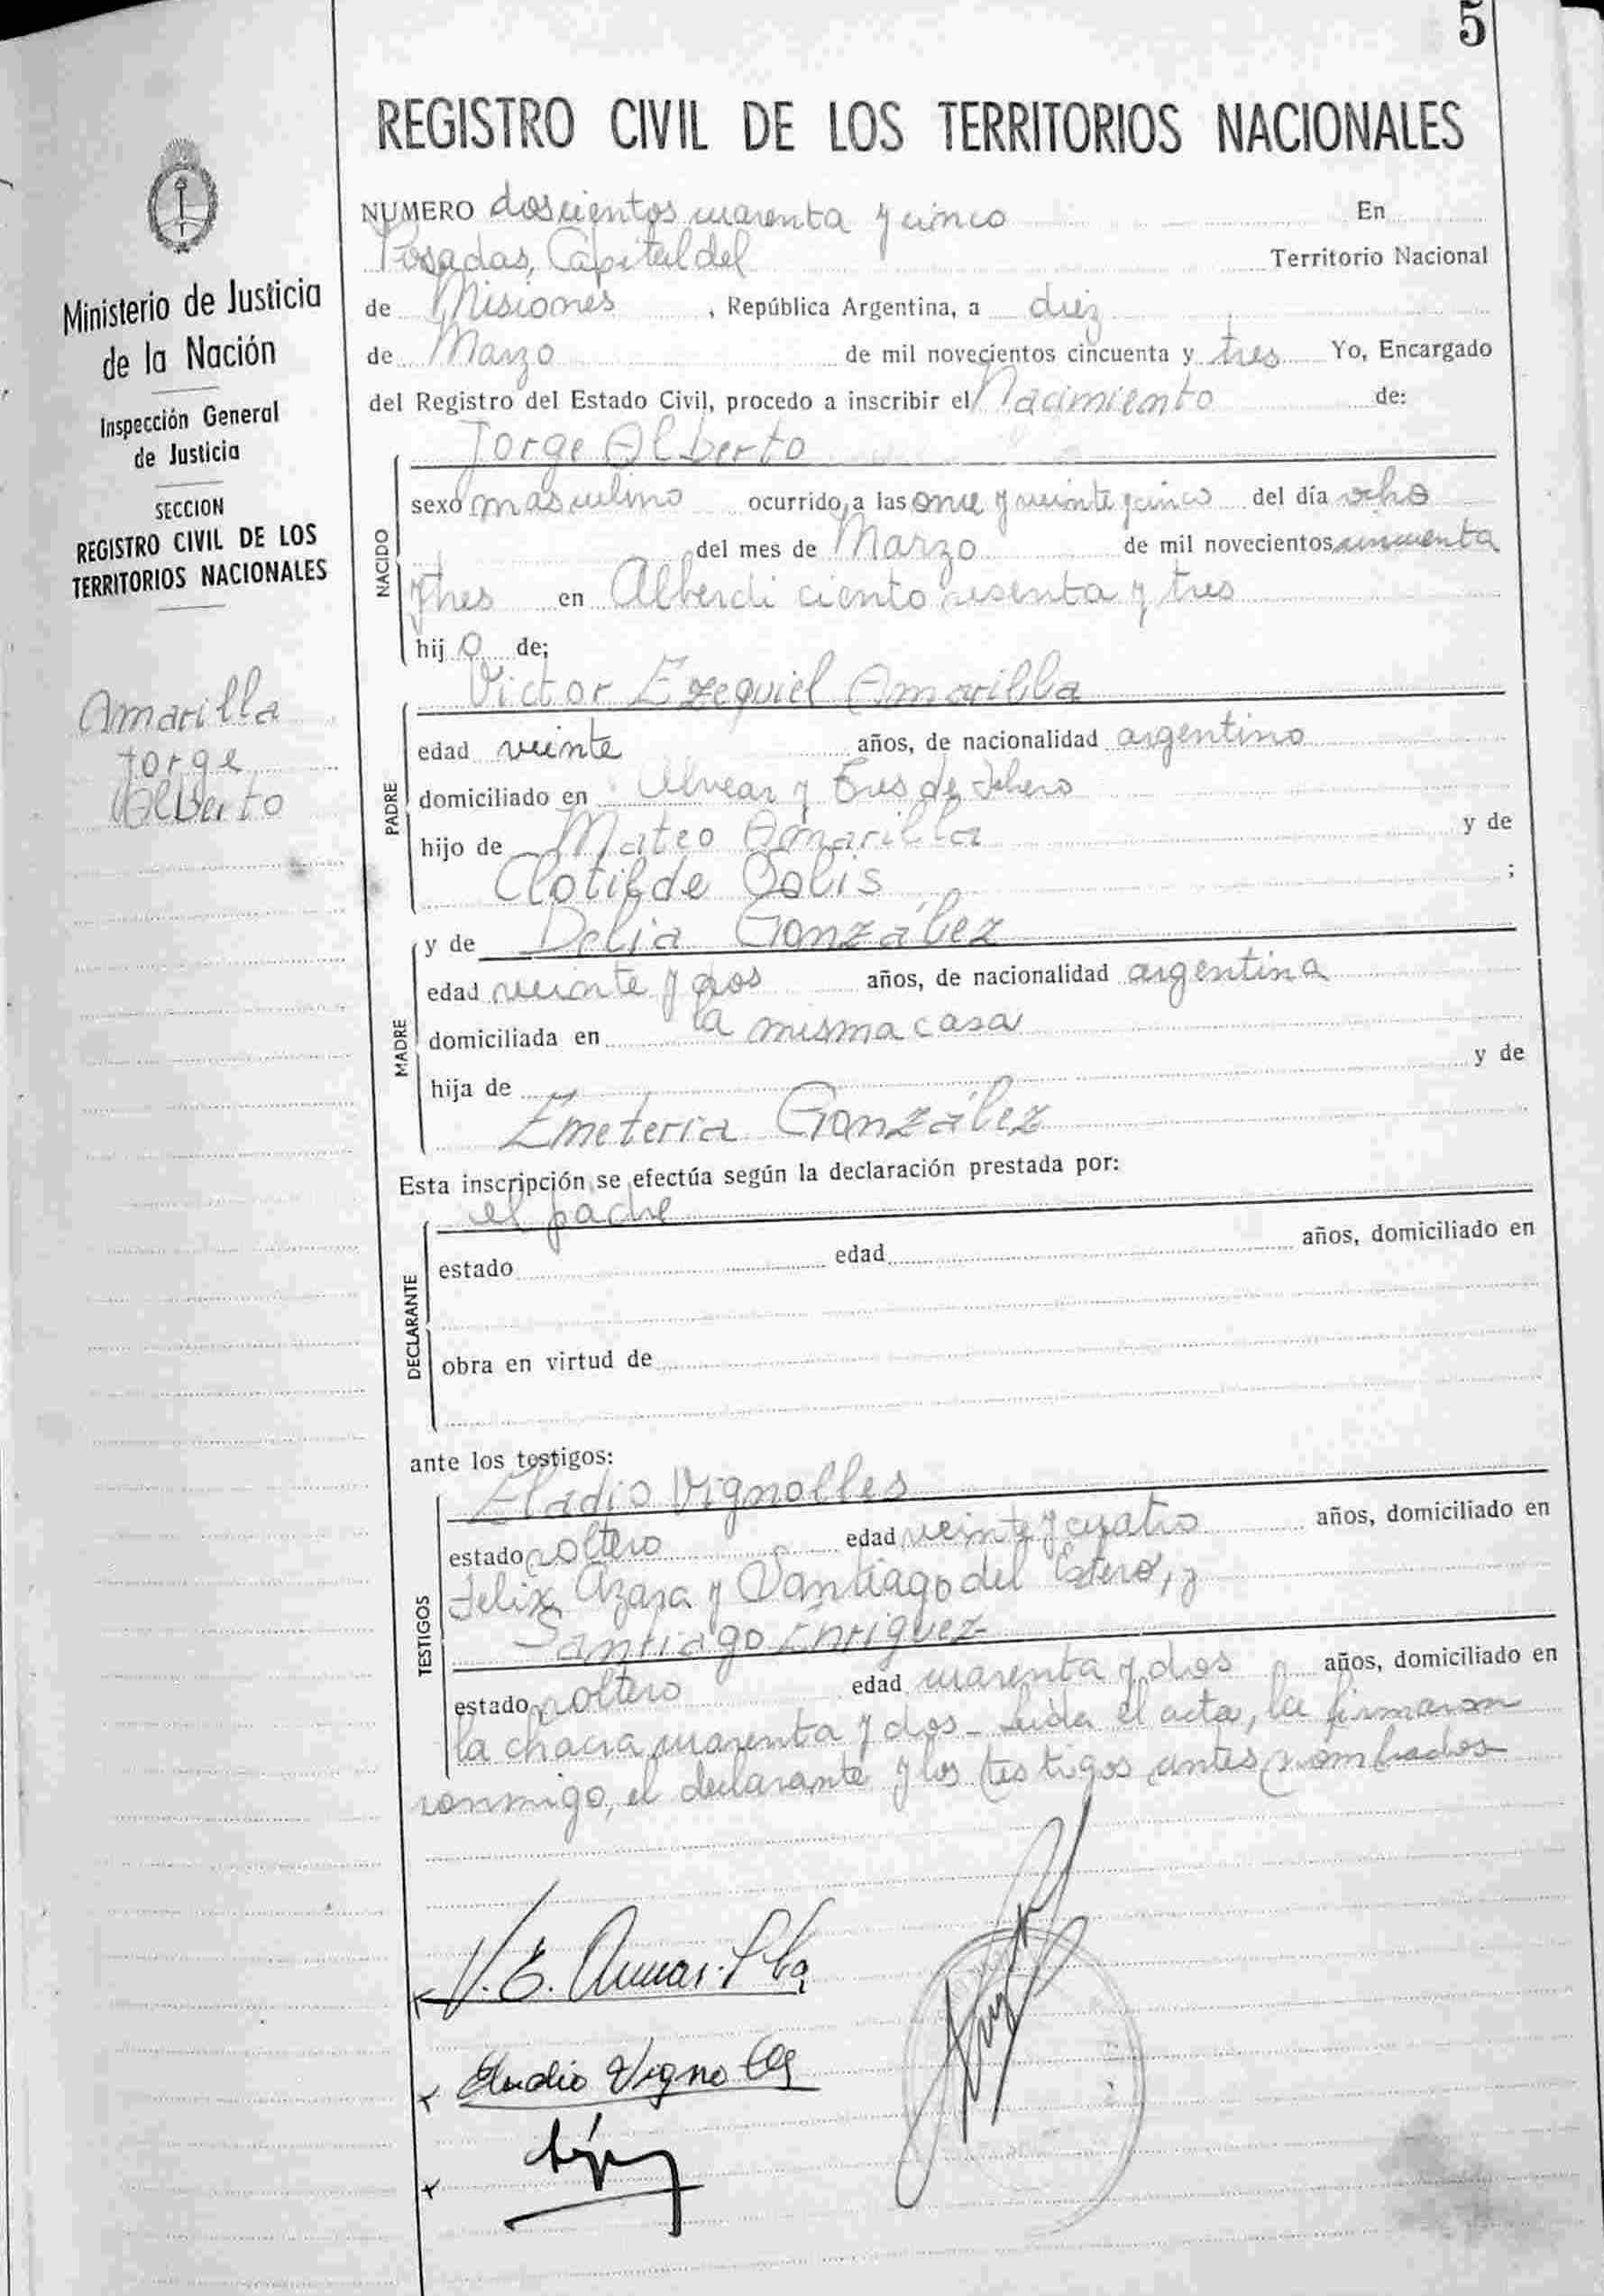 5
REGISTRO CIVIL DE LOS TERRITORIOS NACIONALES
Ministerio de Justicia
de la Nación
Inspección General
de Justicia
SECCION
REGISTRO CIVIL DE LOS
TERRITORIOS NACIONALES
Amarilla
Jorge
Alberto
NUMERO doscientos cuarenta y cinco En
Posadas, Capital del Territorio Nacional
de Misiones, República Argentina, a diez
de Marzo de mil novecientos cincuenta y tres Yo, Encargado
del Registro del Estado Civil, procedo a inscribir el Nacimiento de:
Jorge Alberto
NACIDO
sexo masculino ocurrido a las once y veinte y cinco del día ocho
del mes de Marzo de mil novecientos cincuenta
y tres en Alberdi ciento sesenta y tres
hijo de;
Victor Ezequiel Amarilla
PADRE
edad veinte años, de nacionalidad argentino
domiciliado en Alvear y Tres de Febrero
hijo de Mateo Amarilla y de
Clotilde Solis ;
y de Delia González
MADRE
edad veinte y dos años, de nacionalidad argentina
domiciliada en la misma casa
hija de y de
Emeteria González
Esta inscripción se efectúa según la declaración prestada por:
el padre
DECLARANTE
estado edad años, domiciliado en
obra en virtud de
ante los testigos:
Eladio Vignolles
TESTIGOS
estado soltero edad veinte y cuatro años, domiciliado en
Felix Azara y Santiago del Estero, y
Santiago Enriquez
estado soltero edad cuarenta y dos años, domiciliado en
la chacra cuarenta y dos - Leida el acta, la firmaron
conmigo, el declarante y los testigos antes nombrados
V. E. Amarilla
Eladio Vignolles